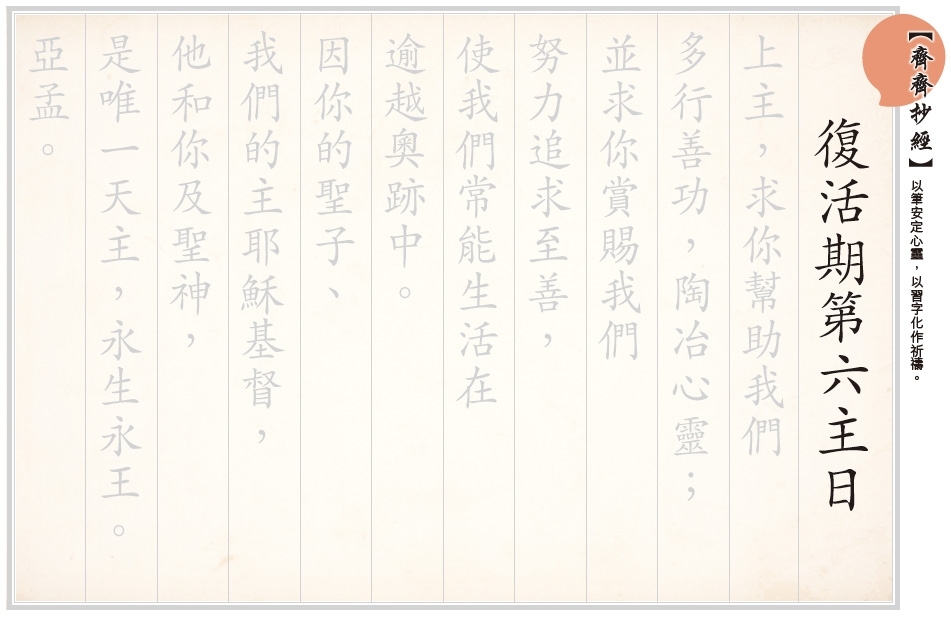 【齊齊抄經】
以筆安定心靈，以習字化作祈禱。
復活期第六主日
上主，求你幫助我們
多行善功，陶冶心靈；
並求你賞賜我們
努力追求至善，
使我們常能生活在
逾越奧跡中。
因你的聖子、
我們的主耶穌基督，
他和你及聖神，
是唯一天主，永生永王。
亞孟。